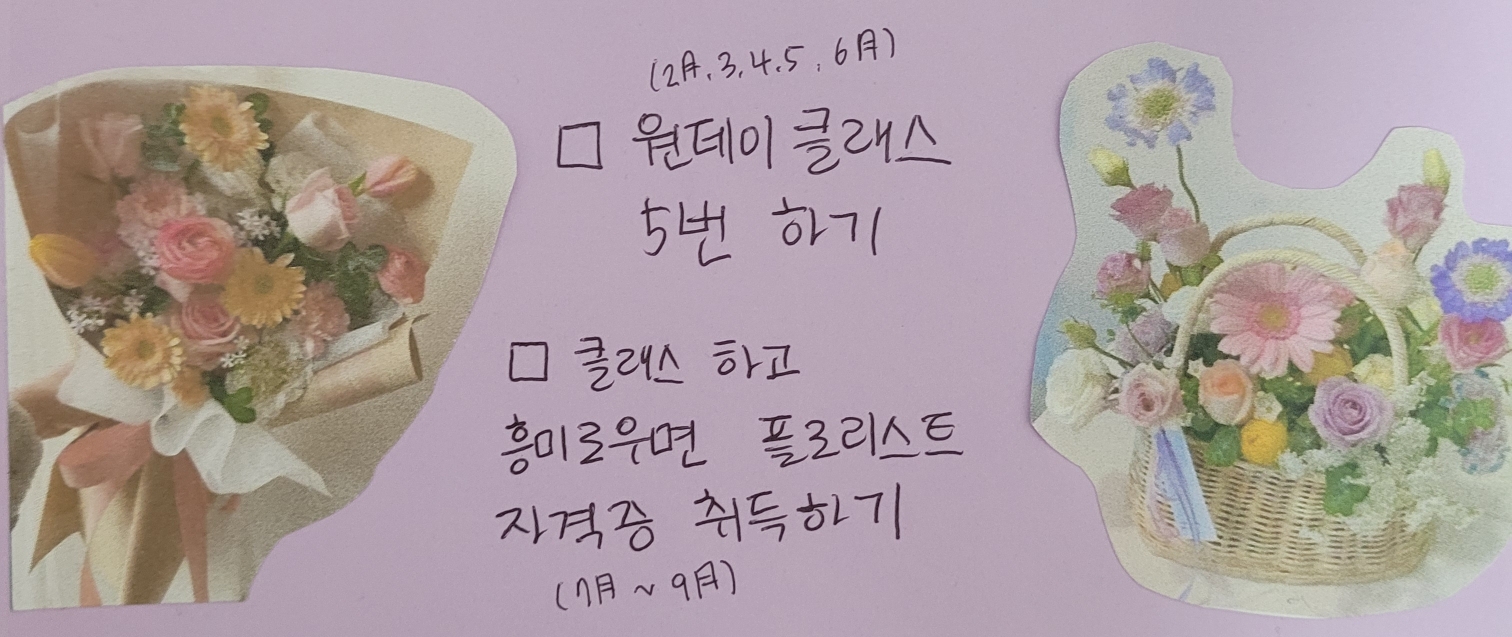 (2月, 3, 4, 5, 6月)
□ 원데이 클래스
5번 하기
□ 클래스 하고
흥미로우면 플로리스트
자격증 취득하기
(7月 ~ 9月)